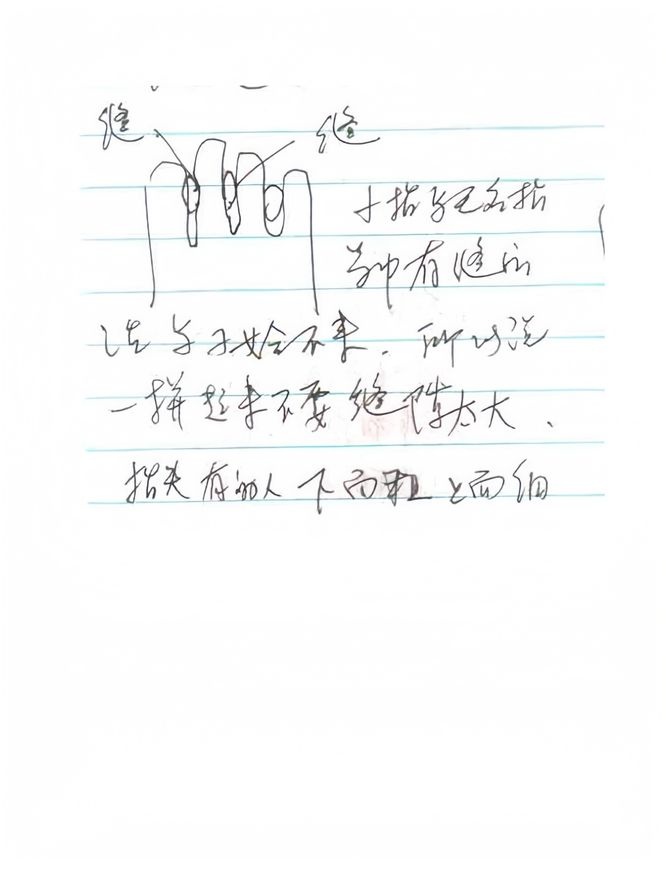 缝 缝
小指与无名指
都有缝的
说与子女合不来．所以说
一拼起来不要缝隙太大、
指头有的人下面粗上面细